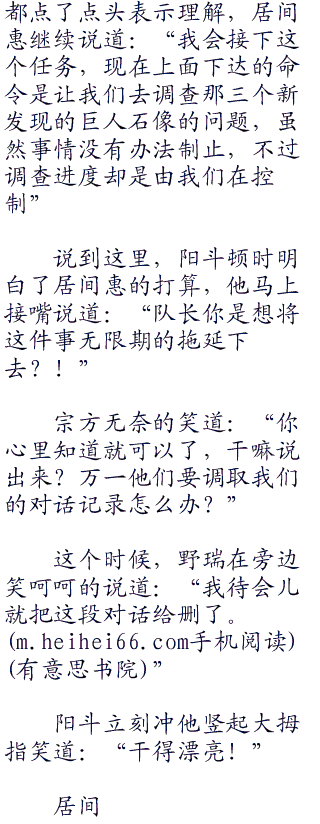 都点了点头表示理解，居间
惠继续说道：“我会接下这
个任务，现在上面下达的命
令是让我们去调查那三个新
发现的巨人石像的问题，虽
然事情没有办法制止，不过
调查进度却是由我们在控
制”
说到这里，阳斗顿时明
白了居间惠的打算，他马上
接嘴说道：“队长你是想将
这件事无限期的拖延下
去？！”
宗方无奈的笑道：“你
心里知道就可以了，干嘛说
出来？万一他们要调取我们
的对话记录怎么办？”
这个时候，野瑞在旁边
笑呵呵的说道：“我待会儿
就把这段对话给删了。
(m.heihei66.com手机阅读)
(有意思书院)”
阳斗立刻冲他竖起大拇
指笑道：“干得漂亮！”
居间